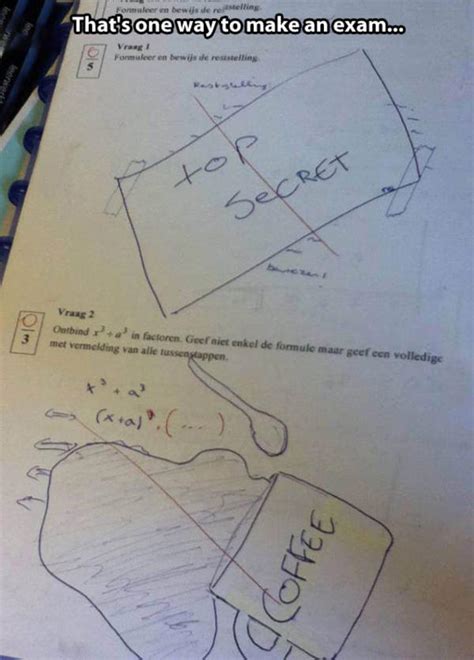 Formuleer en bewijs de reststelling.
That's one way to make an exam...
0
5
Vraag 1
Formuleer en bewijs de reststelling.
Reststelling
TOP
SECRET
bewijzen
Vraag 2
0
3
Ontbind x³ + a³ in factoren. Geef niet enkel de formule maar geef een volledige
met vermelding van alle tussenstappen.
x³ + a³
(x+a)³.(...)
COFFEE